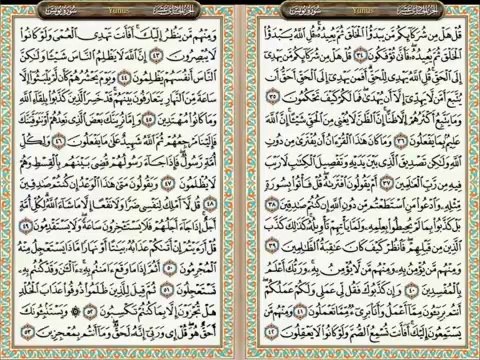 سُورَةُ يُونُسَ
Yunus
الجزء الحادي عشر
قُلْ هَلْ مِن شُرَكَآئِكُم مَّن يَبْدَؤُا۟ ٱلْخَلْقَ ثُمَّ يُعِيدُهُۥ ۚ قُلِ ٱللَّهُ يَبْدَؤُا۟
ٱلْخَلْقَ ثُمَّ يُعِيدُهُۥ ۖ فَأَنَّىٰ تُؤْفَكُونَ ٣٤ قُلْ هَلْ مِن شُرَكَآئِكُم مَّن يَهْدِىٓ
إِلَى ٱلْحَقِّ ۚ قُلِ ٱللَّهُ يَهْدِى لِلْحَقِّ ۗ أَفَمَن يَهْدِىٓ إِلَى ٱلْحَقِّ أَحَقُّ أَن
يُتَّبَعَ أَمَّن لَّا يَهِدِّىٓ إِلَّآ أَن يُهْدَىٰ ۖ فَمَا لَكُمْ كَيْفَ تَحْكُمُونَ ٣٥
وَمَا يَتَّبِعُ أَكْثَرُهُمْ إِلَّا ظَنًّا ۚ إِنَّ ٱلظَّنَّ لَا يُغْنِى مِنَ ٱلْحَقِّ شَيْـًٔا ۚ إِنَّ ٱللَّهَ
عَلِيمٌۢ بِمَا يَفْعَلُونَ ٣٦ وَمَا كَانَ هَٰذَا ٱلْقُرْءَانُ أَن يُفْتَرَىٰ مِن دُونِ
ٱللَّهِ وَلَٰكِن تَصْدِيقَ ٱلَّذِى بَيْنَ يَدَيْهِ وَتَفْصِيلَ ٱلْكِتَٰبِ لَا رَيْبَ
فِيهِ مِن رَّبِّ ٱلْعَٰلَمِينَ ٣٧ أَمْ يَقُولُونَ ٱفْتَرَىٰهُ ۖ قُلْ فَأْتُوا۟ بِسُورَةٍ
مِّثْلِهِۦ وَٱدْعُوا۟ مَنِ ٱسْتَطَعْتُم مِّن دُونِ ٱللَّهِ إِن كُنتُمْ صَٰدِقِينَ ٣٨
بَلْ كَذَّبُوا۟ بِمَا لَمْ يُحِيطُوا۟ بِعِلْمِهِۦ وَلَمَّا يَأْتِهِمْ تَأْوِيلُهُۥ ۚ كَذَٰلِكَ كَذَّبَ
ٱلَّذِينَ مِن قَبْلِهِمْ ۖ فَٱنظُرْ كَيْفَ كَانَ عَٰقِبَةُ ٱلظَّٰلِمِينَ ٣٩
وَمِنْهُم مَّن يُؤْمِنُ بِهِۦ وَمِنْهُم مَّن لَّا يُؤْمِنُ بِهِۦ ۚ وَرَبُّكَ أَعْلَمُ
بِٱلْمُفْسِدِينَ ٤٠ وَإِن كَذَّبُوكَ فَقُل لِّى عَمَلِى وَلَكُمْ عَمَلُكُمْ ۖ
أَنتُم بَرِيٓـُٔونَ مِمَّآ أَعْمَلُ وَأَنَا۠ بَرِىٓءٌ مِّمَّا تَعْمَلُونَ ٤١ وَمِنْهُم مَّن
يَسْتَمِعُونَ إِلَيْكَ ۚ أَفَأَنتَ تُسْمِعُ ٱلصُّمَّ وَلَوْ كَانُوا۟ لَا يَعْقِلُونَ ٤٢
سُورَةُ يُونُسَ
Yunus
الجزء الحادي عشر
وَمِنْهُم مَّن يَنظُرُ إِلَيْكَ ۚ أَفَأَنتَ تَهْدِى ٱلْعُمْىَ وَلَوْ كَانُوا۟
لَا يُبْصِرُونَ ٤٣ إِنَّ ٱللَّهَ لَا يَظْلِمُ ٱلنَّاسَ شَيْـًٔا وَلَٰكِنَّ
ٱلنَّاسَ أَنفُسَهُمْ يَظْلِمُونَ ٤٤ وَيَوْمَ يَحْشُرُهُمْ كَأَن لَّمْ يَلْبَثُوٓا۟ إِلَّا
سَاعَةً مِّنَ ٱلنَّهَارِ يَتَعَارَفُونَ بَيْنَهُمْ ۚ قَدْ خَسِرَ ٱلَّذِينَ كَذَّبُوا۟ بِلِقَآءِ ٱللَّهِ
وَمَا كَانُوا۟ مُهْتَدِينَ ٤٥ وَإِمَّا نُرِيَنَّكَ بَعْضَ ٱلَّذِى نَعِدُهُمْ أَوْ نَتَوَفَّيَنَّكَ
فَإِلَيْنَا مَرْجِعُهُمْ ثُمَّ ٱللَّهُ شَهِيدٌ عَلَىٰ مَا يَفْعَلُونَ ٤٦ وَلِكُلِّ
أُمَّةٍ رَّسُولٌ ۖ فَإِذَا جَآءَ رَسُولُهُمْ قُضِىَ بَيْنَهُم بِٱلْقِسْطِ وَهُمْ
لَا يُظْلَمُونَ ٤٧ وَيَقُولُونَ مَتَىٰ هَٰذَا ٱلْوَعْدُ إِن كُنتُمْ صَٰدِقِينَ
٤٨ قُل لَّآ أَمْلِكُ لِنَفْسِى ضَرًّا وَلَا نَفْعًا إِلَّا مَا شَآءَ ٱللَّهُ ۗ لِكُلِّ أُمَّةٍ
أَجَلٌ ۚ إِذَا جَآءَ أَجَلُهُمْ فَلَا يَسْتَـْٔخِرُونَ سَاعَةً ۖ وَلَا يَسْتَقْدِمُونَ ٤٩
قُلْ أَرَءَيْتُمْ إِنْ أَتَىٰكُمْ عَذَابُهُۥ بَيَٰتًا أَوْ نَهَارًا مَّاذَا يَسْتَعْجِلُ مِنْهُ
ٱلْمُجْرِمُونَ ٥٠ أَثُمَّ إِذَا مَا وَقَعَ ءَامَنتُم بِهِۦٓ ۚ ءَآلْـَٰٔنَ وَقَدْ كُنتُم بِهِۦ
تَسْتَعْجِلُونَ ٥١ ثُمَّ قِيلَ لِلَّذِينَ ظَلَمُوا۟ ذُوقُوا۟ عَذَابَ ٱلْخُلْدِ
هَلْ تُجْزَوْنَ إِلَّا بِمَا كُنتُمْ تَكْسِبُونَ ٥٢ وَيَسْتَنۢبِـُٔونَكَ
أَحَقٌّ هُوَ ۖ قُلْ إِى وَرَبِّىٓ إِنَّهُۥ لَحَقٌّ ۖ وَمَآ أَنتُم بِمُعْجِزِينَ ٥٣